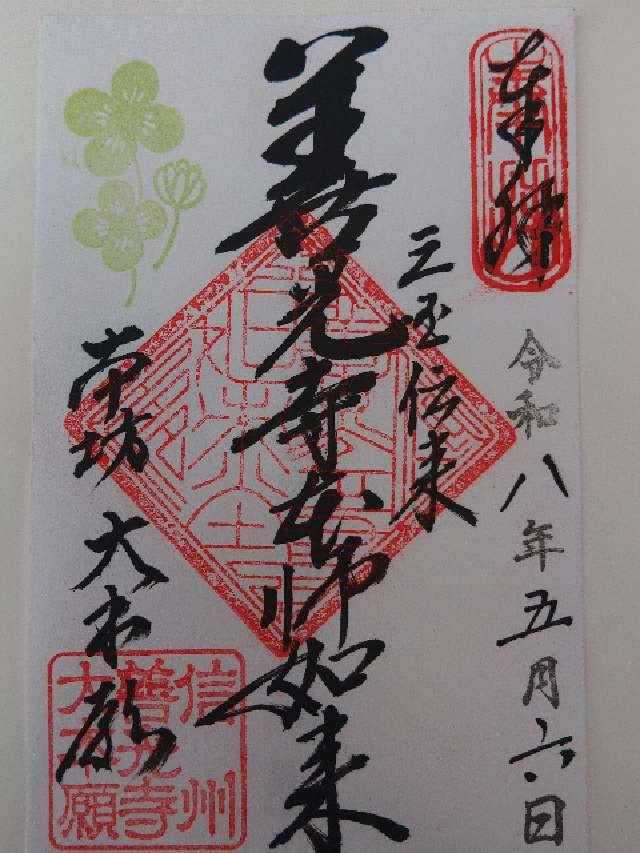 奉拝
令和八年五月六日
三国伝来
善光寺本師如来
本坊 大本願
信州
善光寺
大本願